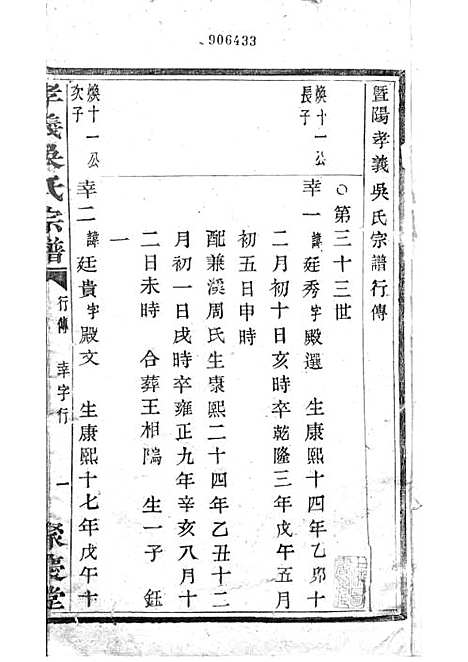 906433
暨陽孝義吳氏宗譜行傳
○第三十三世
煥十一公
長子
幸一 諱廷秀字殿選 生康熙十四年乙卯十
二月初十日亥時卒乾隆三年戊午五月
初五日申時
配兼溪周氏生康熙二十四年乙丑十二
月初一日戌時卒雍正九年辛亥八月十
二日未時 合葬王相隝 生一子 鈺
一
煥十一公
次子
幸二 諱廷貴字殿文 生康熙十七年戊午十
孝義吳氏宗譜 行傳 幸字行 一 聚慶堂